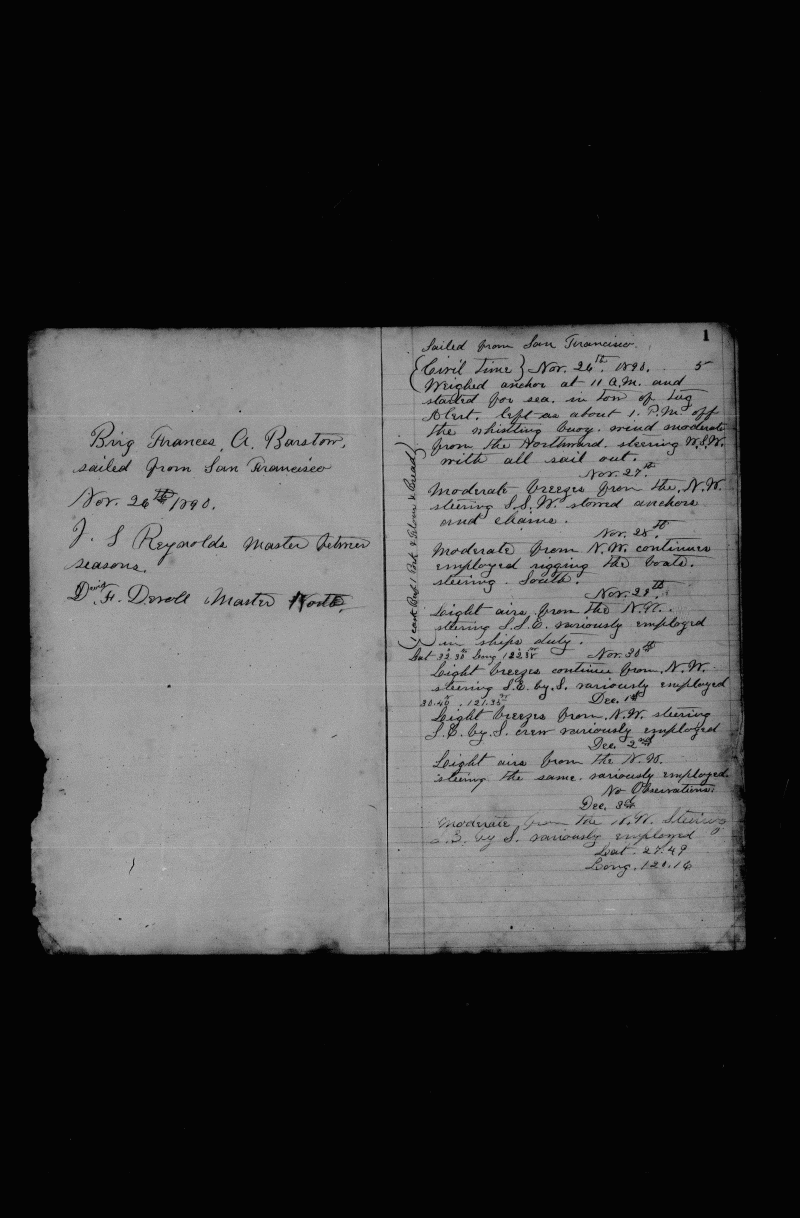 Brig Frances, A. Barstow,
sailed from San Francisco
Nov. 26th 1890.
J. S Reynolds Master between
seasons.
David F. Devoll Master North.
1
Sailed from San Francisco.
(Civil Time) Nov. 26th. 1890. 5
Weighed anchor at 11 A.M. and
started for sea. in tow of tug
Alert. left us about 1. P.M. off
the whistling buoy. wind moderate
from the Northward. steering W.S.W.
with all sail out.
Nov. 27th.
Moderate breezes from the N.W.
steering S.S.W. stowed anchors
and chains.
Nov. 28th
Moderate from N.W. continues
employed rigging the boats.
steering. South.
Nov. 29th
Light airs from the N.W.
steering S.S.E. variously employed
in ships duty.
(1 cask Beef 1 Pork & Flour & Bread)
Lat 32.30 Long 122.38
Nov. 30th
Light breezes continue from N.W.
steering S.E. by S. variously employed
30.40. 121.35
Dec. 1st
Light breezes from N.W. steering
S.E. by S. crew variously employed
Dec. 2nd
Light airs from the N.W.
steering the same. variously employed.
No Observations.
Dec. 3d
Moderate from the N.W. Steering
S.E. by S. variously employed
Lat. 27.49
Long. 120.16